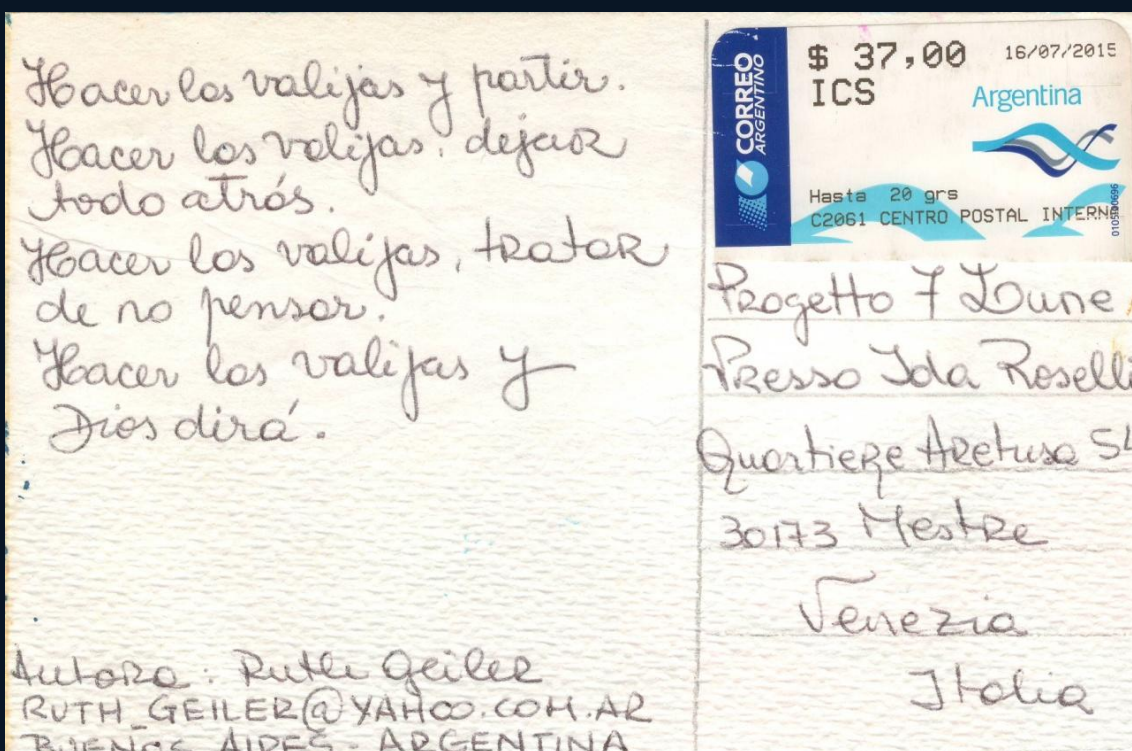 Hacer las valijas y partir.
Hacer las valijas, dejar
todo atrás.
Hacer las valijas, tratar
de no pensar.
Hacer las valijas y
Dios dirá.
Autora: Ruth Geiler
RUTH_GEILER@YAHOO.COM.AR
BUENOS AIRES - ARGENTINA
CORREO
ARGENTINO
$ 37,00 16/07/2015
ICS
Argentina
Hasta 20 grs
C2061 CENTRO POSTAL INTERNA
010500696
Progetto 7 Lune
Presso Ida Roselli
Quartiere Aretusa
30173 Mestre
Venezia
Italia